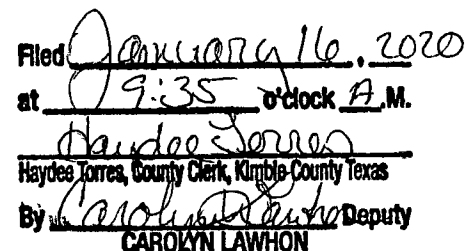 Filed January 16, 2020
at 9:35 o'clock A.M.
Haydee Torres
Haydee Torres, County Clerk, Kimble County Texas
By Carolyn Lawhon Deputy
CAROLYN LAWHON